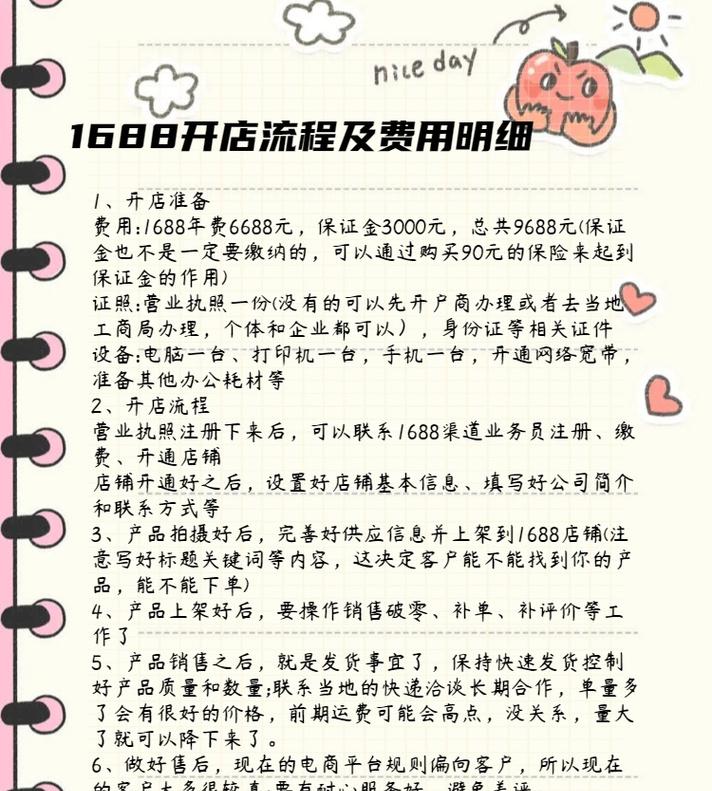 nice day
1688开店流程及费用明细
1、开店准备
费用:1688年费6688元，保证金3000元，总共9688元(保证
金也不是一定要缴纳的，可以通过购买90元的保险来起到
保证金的作用)
证照:营业执照一份(没有的可以先开户商办理或者去当地
工商局办理，个体和企业都可以），身份证等相关证件
设备:电脑一台、打印机一台，手机一台，开通网络宽带，
准备其他办公耗材等
2、开店流程
营业执照注册下来后，可以联系1688渠道业务员注册、缴
费、开通店铺
店铺开通好之后，设置好店铺基本信息、填写好公司简介
和联系方式等
3、产品拍摄好后，完善好供应信息并上架到1688店铺(注
意写好标题关键词等内容，这决定客户能不能找到你的产
品，能不能下单)
4、产品上架好后，要操作销售破零、补单、补评价等工
作了
5、产品销售之后，就是发货事宜了，保持快速发货控制
好产品质量和数量;联系当地的快递洽谈长期合作，单量多
了会有很好的价格，前期运费可能会高点，没关系，量大
了就可以降下来了。
6、做好售后，现在的电商平台规则偏向客户，所以现在
的客户大多很较真;要有耐心服务好，避免差评